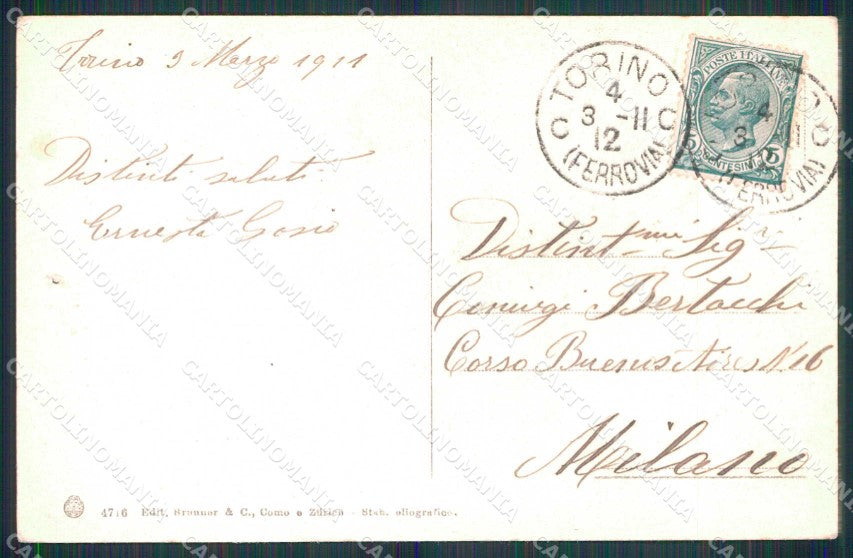 Torino 3 Marzo 1911
Distinti saluti
Ernesta Gosio
TORINO
4
3 -11
C C
12
(FERROVIA)
POSTE ITALIANE
CENTESIMI 5
4
3 11
(FERROVIA)
Distint.mi Sig.ri
Coniugi Bertacchi
Corso Buenos Aires N 16
Milano
4716 Edit. Brunner & C., Como e Zürich - Stab. eliografico.
CARTOLINOMANIA